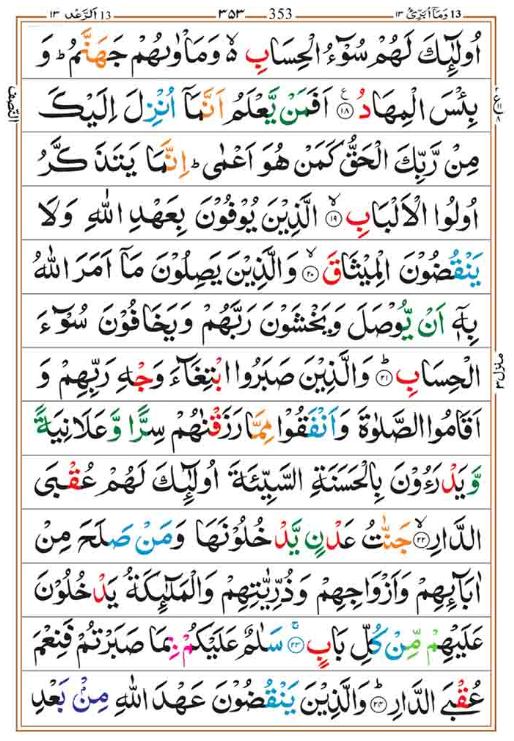 وَمَآ اُبَرِّئُ ١٣ 13 353 ٣٥٣ اَلرَّعْد ١٣ 13
اُولٰٓئِكَ لَهُمْ سُوْٓءُ الْحِسَابِ ۙ وَمَاْوٰىهُمْ جَهَنَّمُ ؕ وَ
بِئْسَ الْمِهَادُ ﴿۱۸﴾ اَفَمَنْ يَّعْلَمُ اَنَّمَاۤ اُنْزِلَ اِلَيْكَ
مِنْ رَّبِّكَ الْحَقُّ كَمَنْ هُوَ اَعْمٰى ؕ اِنَّمَا يَتَذَكَّرُ
اُولُوا الْاَلْبَابِ ﴿۱۹﴾ۙ الَّذِيْنَ يُوْفُوْنَ بِعَهْدِ اللّٰهِ وَلَا
يَنْقُضُوْنَ الْمِيْثَاقَ ﴿۲۰﴾ۙ وَالَّذِيْنَ يَصِلُوْنَ مَاۤ اَمَرَ اللّٰهُ
بِهٖۤ اَنْ يُّوْصَلَ وَيَخْشَوْنَ رَبَّهُمْ وَيَخَافُوْنَ سُوْٓءَ
الْحِسَابِ ﴿۲۱﴾ؕ وَالَّذِيْنَ صَبَرُوا ابْتِغَآءَ وَجْهِ رَبِّهِمْ وَ
اَقَامُوا الصَّلٰوةَ وَاَنْفَقُوْا مِمَّا رَزَقْنٰهُمْ سِرًّا وَّعَلَانِيَةً
وَّيَدْرَءُوْنَ بِالْحَسَنَةِ السَّيِّئَةَ اُولٰٓئِكَ لَهُمْ عُقْبَى
الدَّارِ ﴿۲۲﴾ۙ جَنّٰتُ عَدْنٍ يَّدْخُلُوْنَهَا وَمَنْ صَلَحَ مِنْ
اٰبَآئِهِمْ وَاَزْوَاجِهِمْ وَذُرِّيّٰتِهِمْ وَالْمَلٰٓئِكَةُ يَدْخُلُوْنَ
عَلَيْهِمْ مِّنْ كُلِّ بَابٍ ﴿۲۳﴾ۚ سَلٰمٌ عَلَيْكُمْ بِمَا صَبَرْتُمْ فَنِعْمَ
عُقْبَى الدَّارِ ﴿۲۴﴾ؕ وَالَّذِيْنَ يَنْقُضُوْنَ عَهْدَ اللّٰهِ مِنْۢ بَعْدِ
النصف
منزل ٣